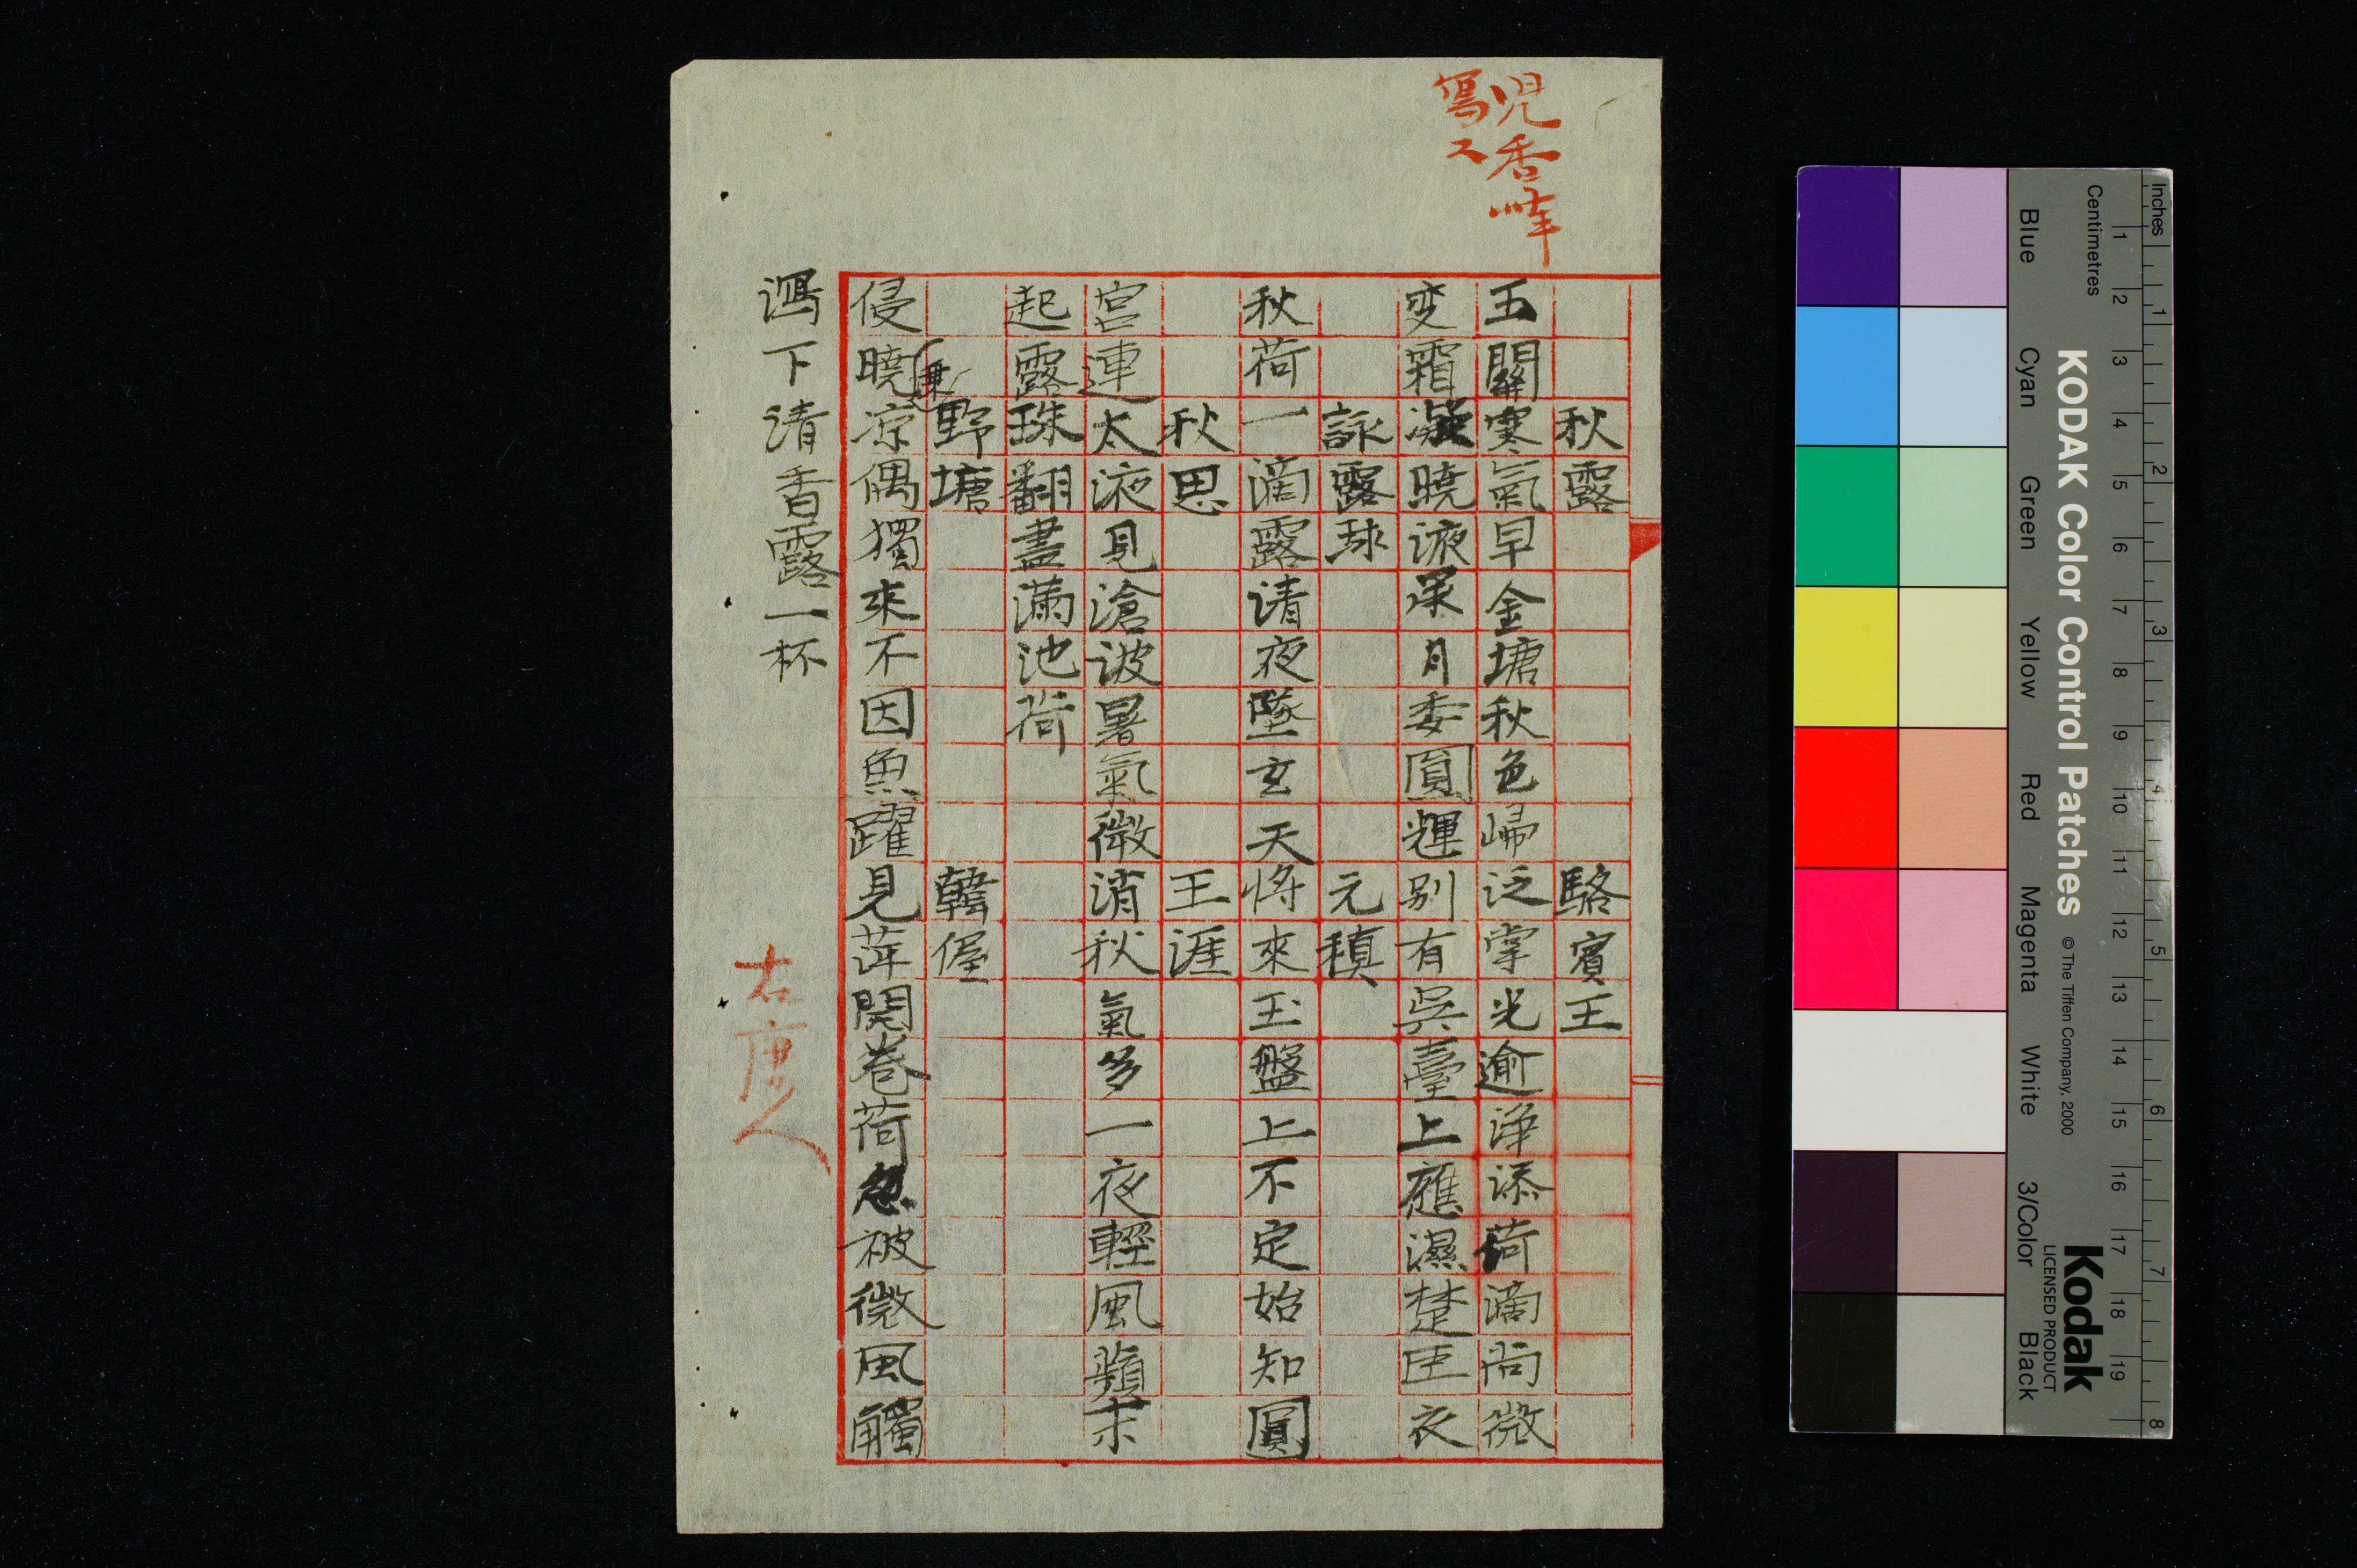 児香峰
寫又
秋露　駱賓王
玉關寒氣早金塘秋色歸泛掌光逾淨添荷滴尚微
变霜凝曉液承月委圓輝别有吳臺上應濕楚臣衣
詠露珠　元稹
秋荷一滴露清夜墜玄天将來玉盤上不定始知圓
秋思　王涯
宮連太液見滄波暑氣微消秋氣多一夜輕風蘋末
起露珠翻盡滿池荷
野塘　韓偓
侵曉凉偶獨來不因魚躍見萍開卷荷忽被微風觸
乘
瀉下清香露一杯
右唐人
KODAK Color Control Patches © The Tiffen Company, 2000
Kodak
LICENSED PRODUCT
Blue Cyan Green Yellow Red Magenta White 3/Color Black
Inches 1 2 3 4 5 6 7 8
Centimetres 1 2 3 4 5 6 7 8 9 10 11 12 13 14 15 16 17 18 19